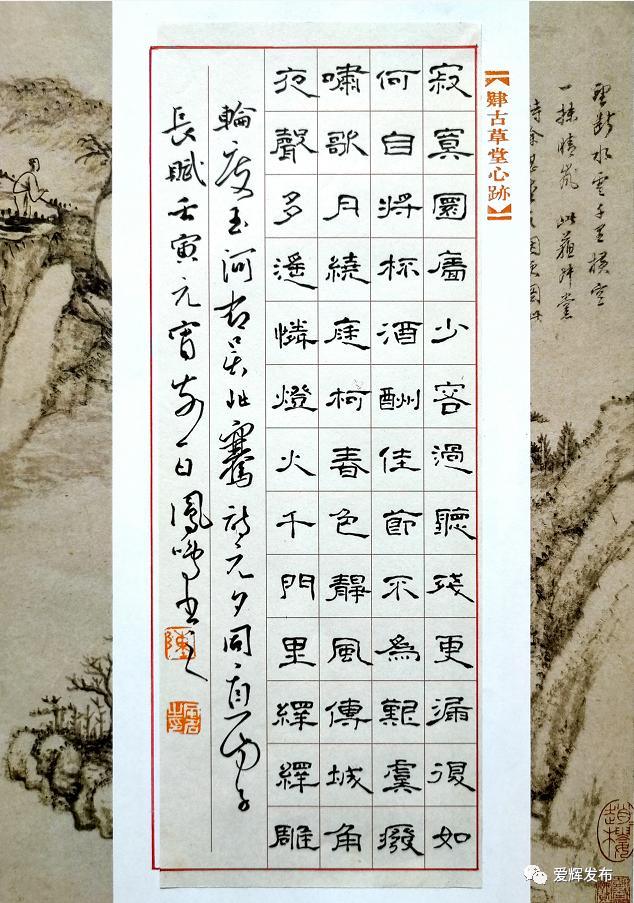 【肄古草堂心跡】
寂寞園廬少客過聽殘更漏復如
何自將杯酒酬佳節不為艱虞廢
嘯歌月繞庭柯春色靜風傳城角
夜聲多遙憐燈火千門里繹繹雕
輪度玉河 吳兆騫詩元夕同 子
長賦壬寅元宵前一日鳳鳴書
陳
望斷水雲千里橫空
一抹晴嵐 此
爱辉发布